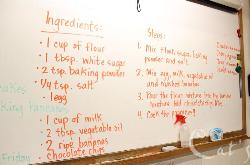 Ingredients:
• 1 cup of flour
• 1 tbsp. white sugar
• 2 tsp. baking powder
• 1/4 tsp. salt
• 1 egg
• 1 cup of milk
• 2 tbsp vegetable oil
• 2 ripe bananas
• chocolate chips
Steps:
1. Mix flour, sugar, baking
powder and salt.
2. Mix egg, milk, vegetable oil
and mashed bananas
3. Pour the flour mixture into the banana
mixture. Add chocolate chips. Mix.
4. Cook the
Friday